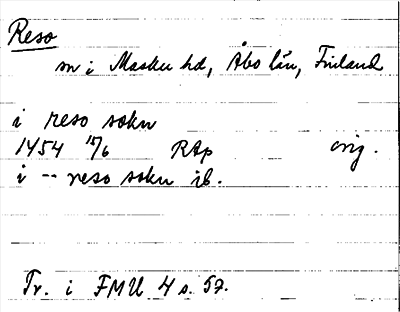 Reso
sn i Masku hd, Åbo län, Finland
i reso sokn
1454 15/6 RAp orig.
i -- reso sokn ib.
Tr. i FMU 4 s. 57.